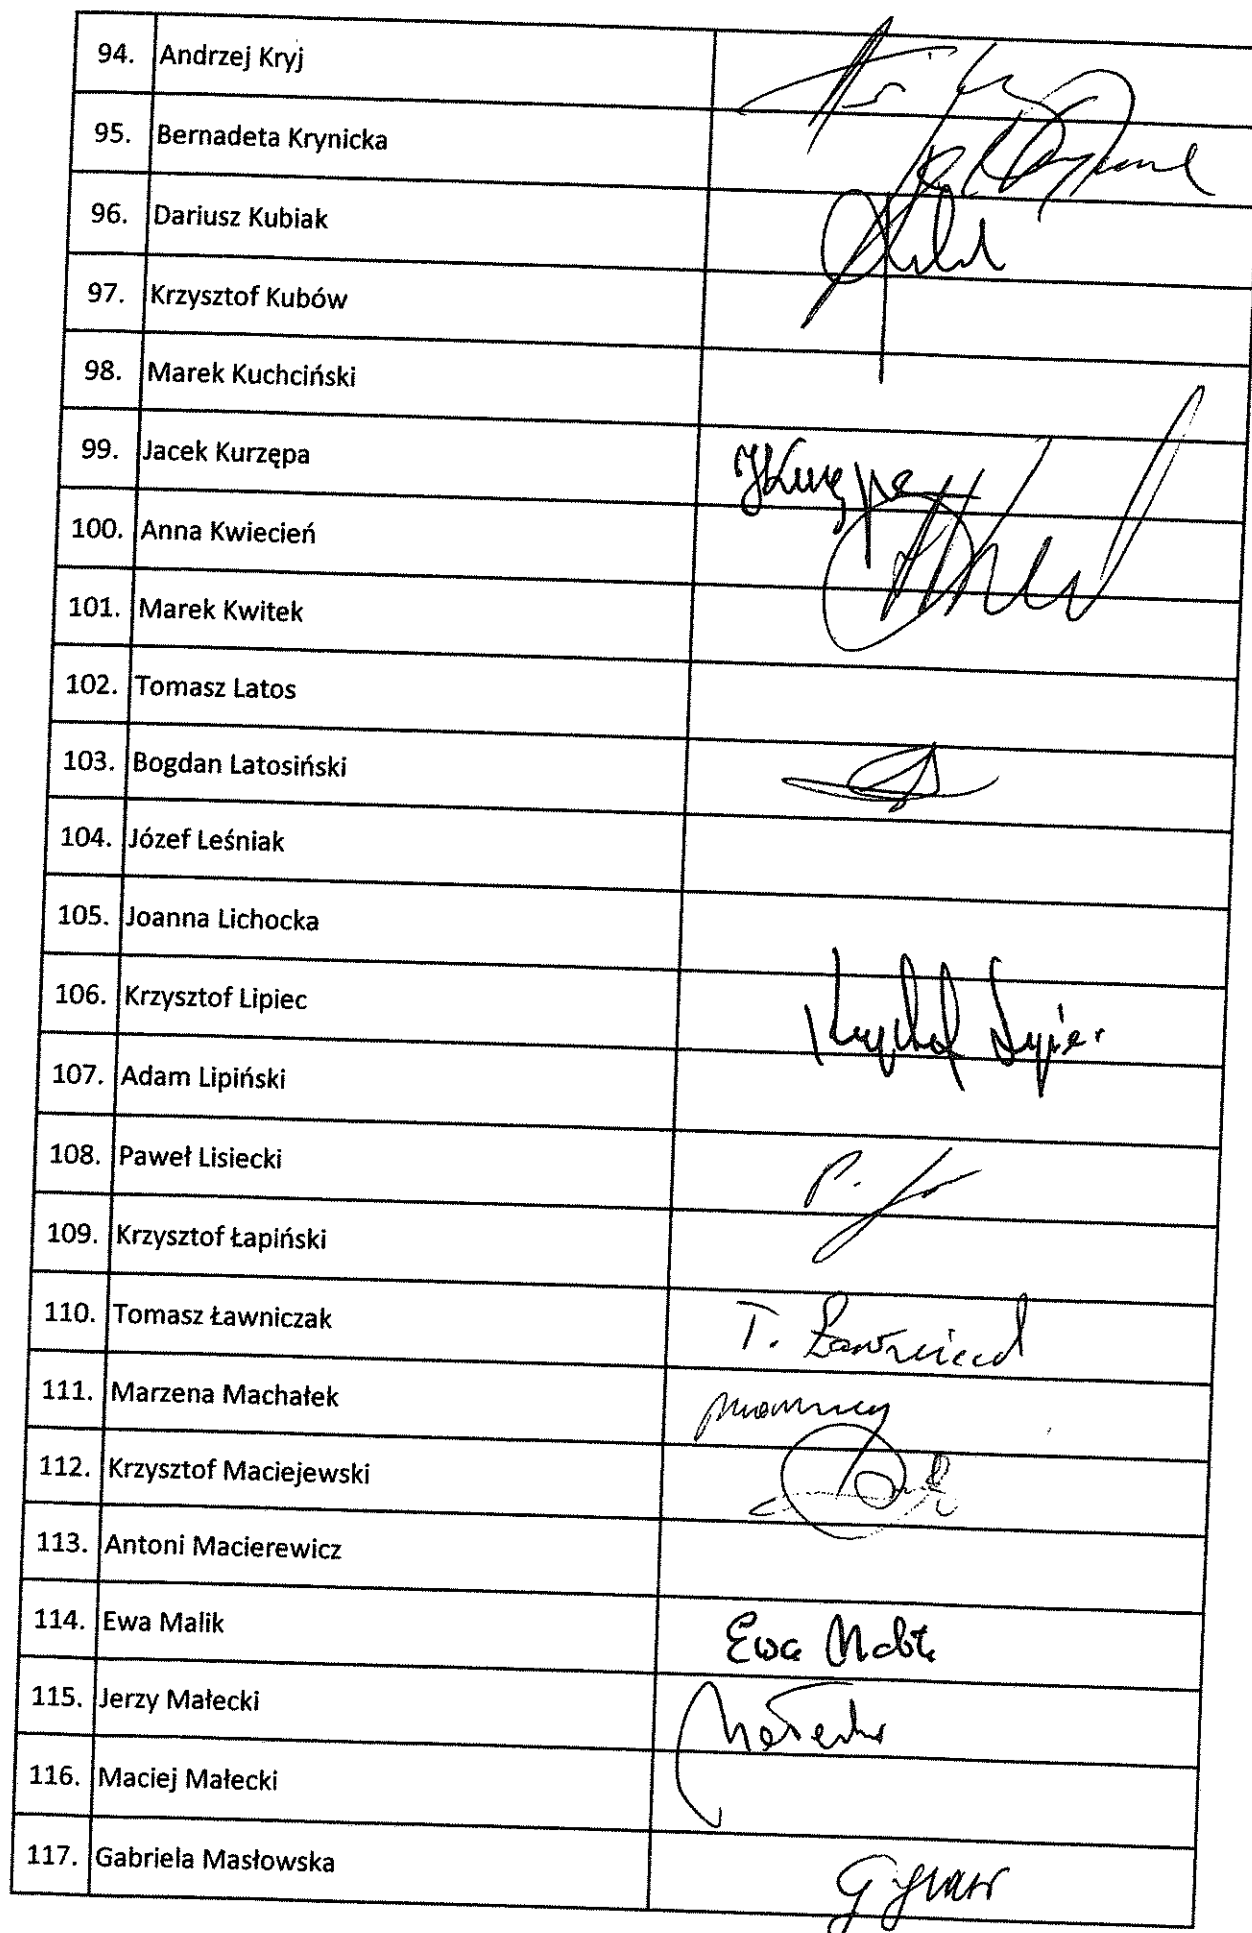 94. Andrzej Kryj
95. Bernadeta Krynicka
96. Dariusz Kubiak
97. Krzysztof Kubów
98. Marek Kuchciński
99. Jacek Kurzępa JKurzępa
100. Anna Kwiecień
101. Marek Kwitek
102. Tomasz Latos
103. Bogdan Latosiński
104. Józef Leśniak
105. Joanna Lichocka
106. Krzysztof Lipiec Krzysztof Lipiec
107. Adam Lipiński
108. Paweł Lisiecki P.
109. Krzysztof Łapiński
110. Tomasz Ławniczak T. Ławniczak
111. Marzena Machałek
112. Krzysztof Maciejewski
113. Antoni Macierewicz
114. Ewa Malik Ewa Malik
115. Jerzy Małecki Małecki
116. Maciej Małecki
117. Gabriela Masłowska